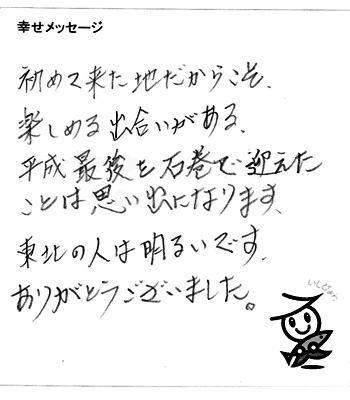 幸せメッセージ
初めて来た地だからこそ、
楽しめる出合いがある、
平成最後を石巻で迎えた
ことは思い出になります、
東北の人は明るいです、
ありがとうございました。